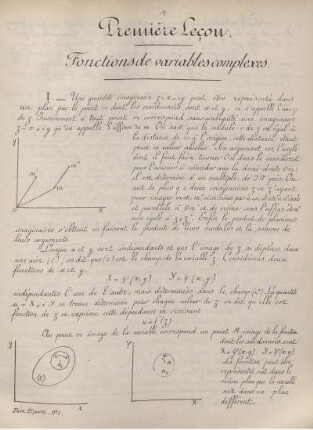 1
Première Leçon.
Fonctions de variables complexes.
I. — Une quantité imaginaire z = x + iy peut être représentée dans
un plan par le point m dont les coordonnées sont x et y, m s'appelle l'image
de z. Inversement à tout point m correspond sans ambiguité une imaginaire
z = x + iy qu'on appelle l'affixe de m. On sait que le module r de z est égal à
la distance de m à l'origine, cette distance étant
prise en valeur absolue. Un argument, ou l'angle
dont il faut faire tourner Ox dans le sens direct
pour l'amener à coïncider avec la demi-droite Om;
il est déterminé à un multiple de 2π près. On
sait de plus que deux imaginaires z et z' ayant
pour images m et m',
et parallèle à Om' et de même sens l'affixe
égale à z + z'. Enfin le produit de plusieurs
imaginaires s'obtient en faisant le produit de leurs modules et la somme de
leurs arguments.
Lorsque x et y sont indépendants et que l'image de z se déplace dans
une aire (C), on dit que (C) est le champ de la variable z. Considérons deux
fonctions de x et y.
X = φ(x,y) Y = ψ(x,y)
indépendantes l'une de l'autre, mais déterminées dans le champ (C). La quantité
u = X + iY se trouve déterminée pour chaque valeur de z on dit qu'elle est
fonction de z et exprime cette dépendance en écrivant
u = f(z)
Au point m image de la variable correspond un point M image de la fonction
dont les coordonnées sont
X = φ(x,y) Y = ψ(x,y)
La fonction peut être
représentée soit dans le
même plan que la variable
soit dans un plan
différent.
y
m''
m'
m
x
y
(C)
m
x
Y
M
X